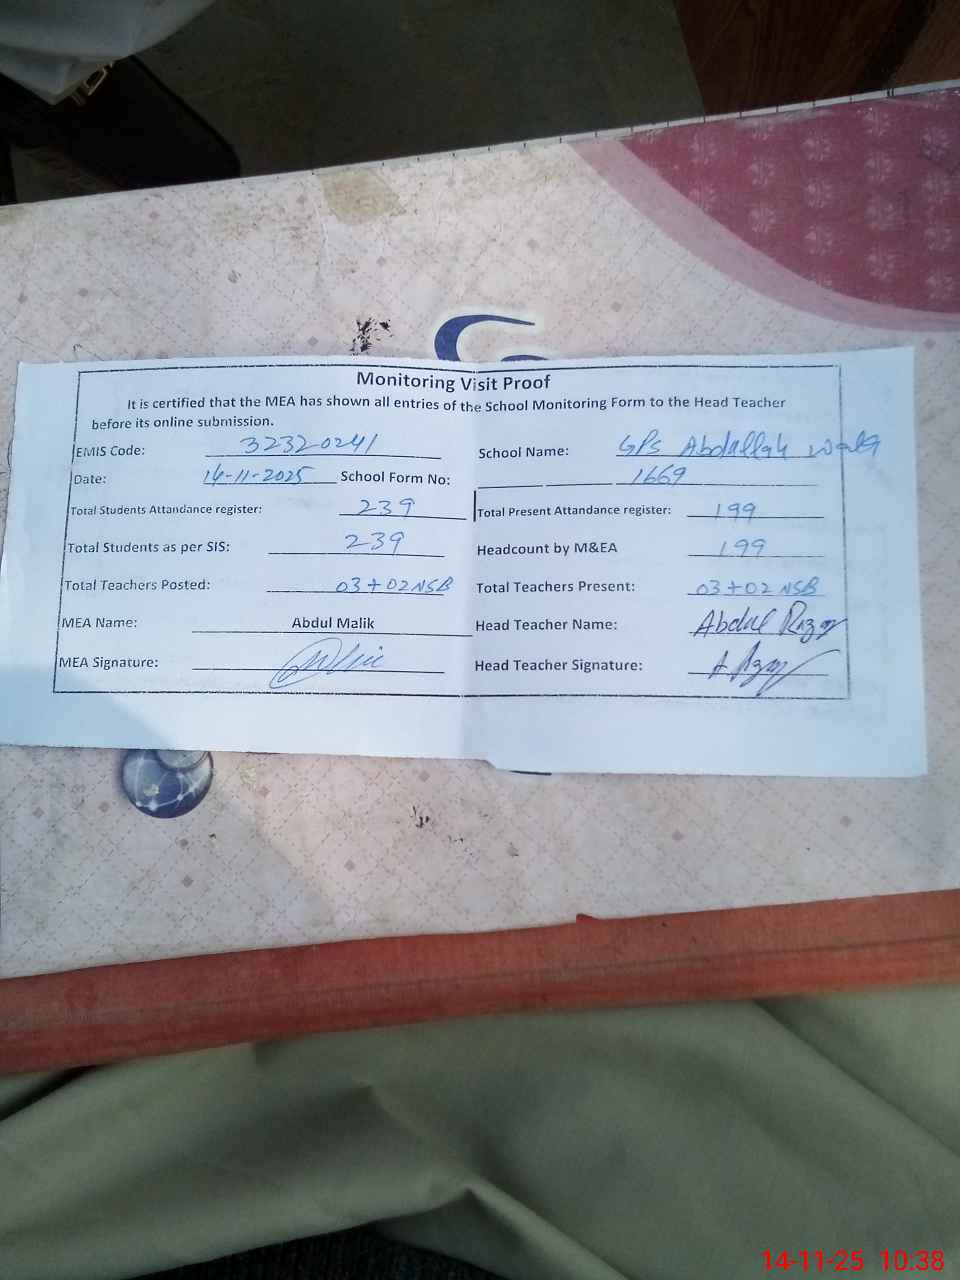 Monitoring Visit Proof
It is certified that the MEA has shown all entries of the School Monitoring Form to the Head Teacher
before its online submission.
EMIS Code: 32320241 School Name: GPS Abdullah wala
Date: 14-11-2025 School Form No: 1669
Total Students Attandance register: 239 Total Present Attandance register: 199
Total Students as per SIS: 239 Headcount by M&EA 199
Total Teachers Posted: 03+02 NSB Total Teachers Present: 03+02 NSB
MEA Name: Abdul Malik Head Teacher Name: Abdul Razaq
MEA Signature: Head Teacher Signature: A Razaq
14-11-25 10:38